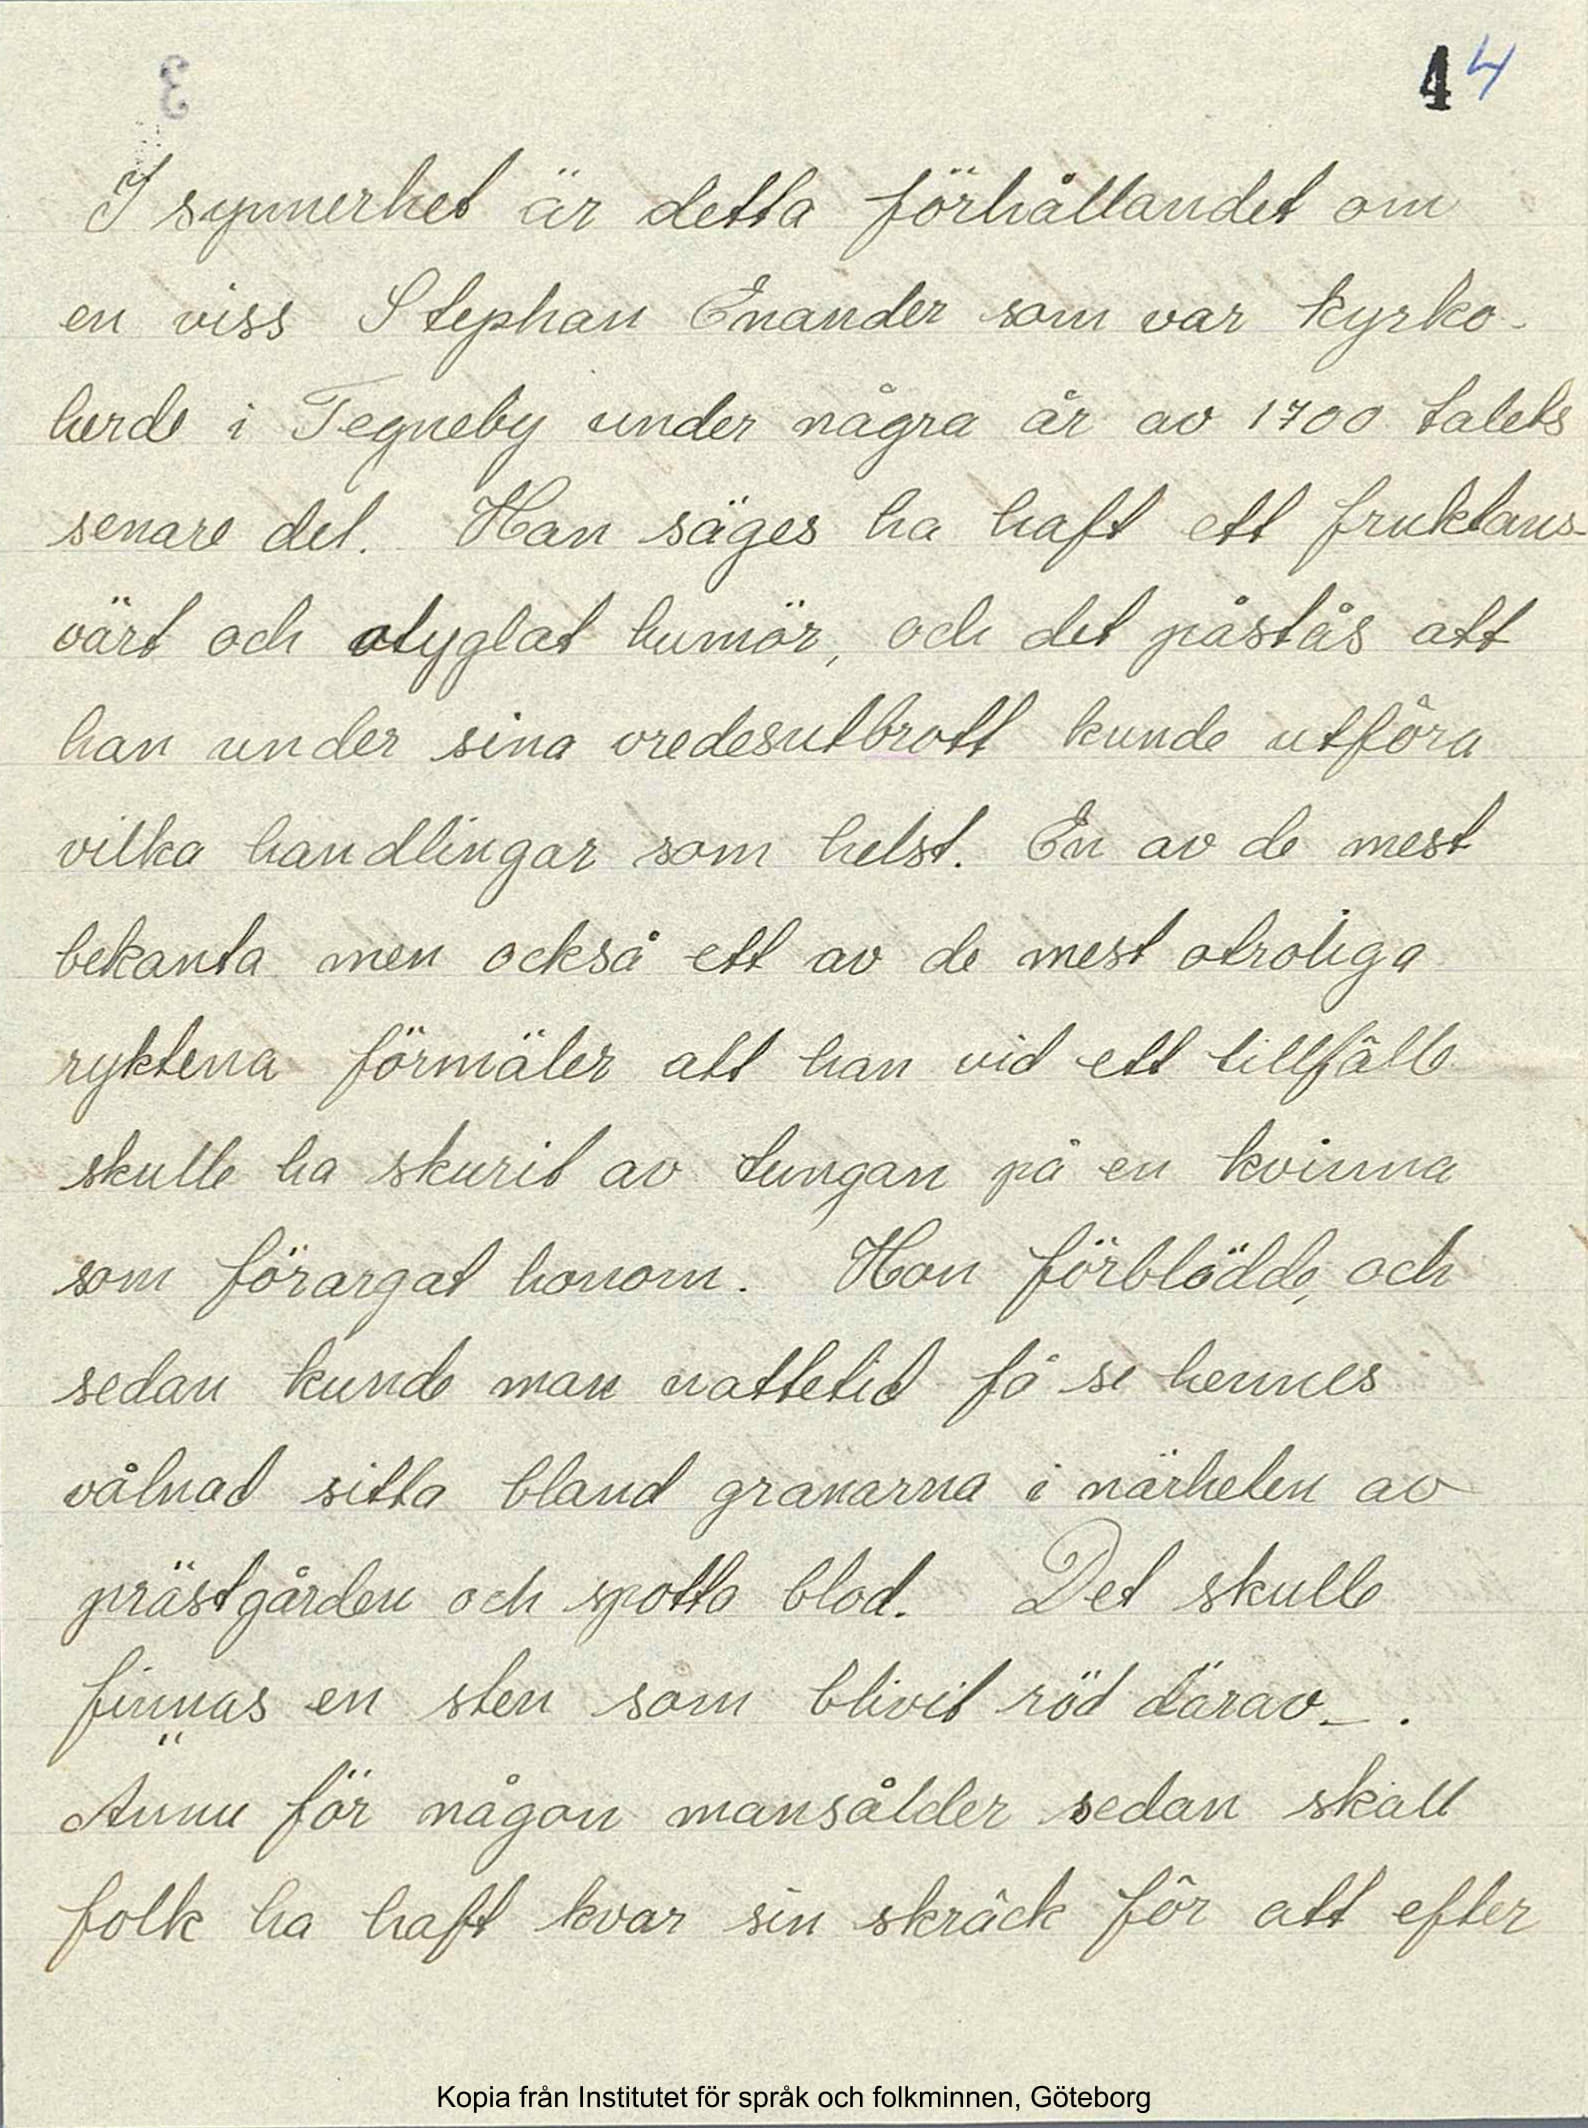 4 4
I synnerhet är detta förhållandet om
en viss Stephan Enander som var kyrko-
herde i Tegneby under några år av 1700 talets
senare del. Han säges ha haft ett fruktans-
värt och otyglat humör, och det påstås att
han under sina vredesutbrott kunde utföra
vilka handlingar som helst. En av de mest
bekanta men också ett av de mest otroliga
ryktena förmäler att han vid ett tillfälle
skulle ha skurit av tungan på en kvinna
som förargat honom. Hon förblödde, och
sedan kunde man nattetid få se hennes
vålnad sitta bland granarna i närheten av
prästgården och spotta blod. Det skulle
finnas en sten som blivit röd därav_.
Ännu för någon mansålder sedan skall
folk ha haft kvar sin skräck för att efter
Kopia från Institutet för språk och folkminnen, Göteborg